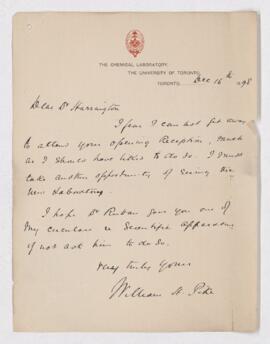 THE CHEMICAL LABORATORY,
THE UNIVERSITY OF TORONTO.
TORONTO, Dec 16th 1898
Dear Dr Harrington
I fear I can not get away
to attend your opening Reception, much
as I should have liked to do so. I must
take another opportunity of seeing the
new Laboratory.
I hope Dr Ruttan gave you one of
my circulars re Scientific Apparatus
if not ask him to do so.
Very truly yours
William H. Pike